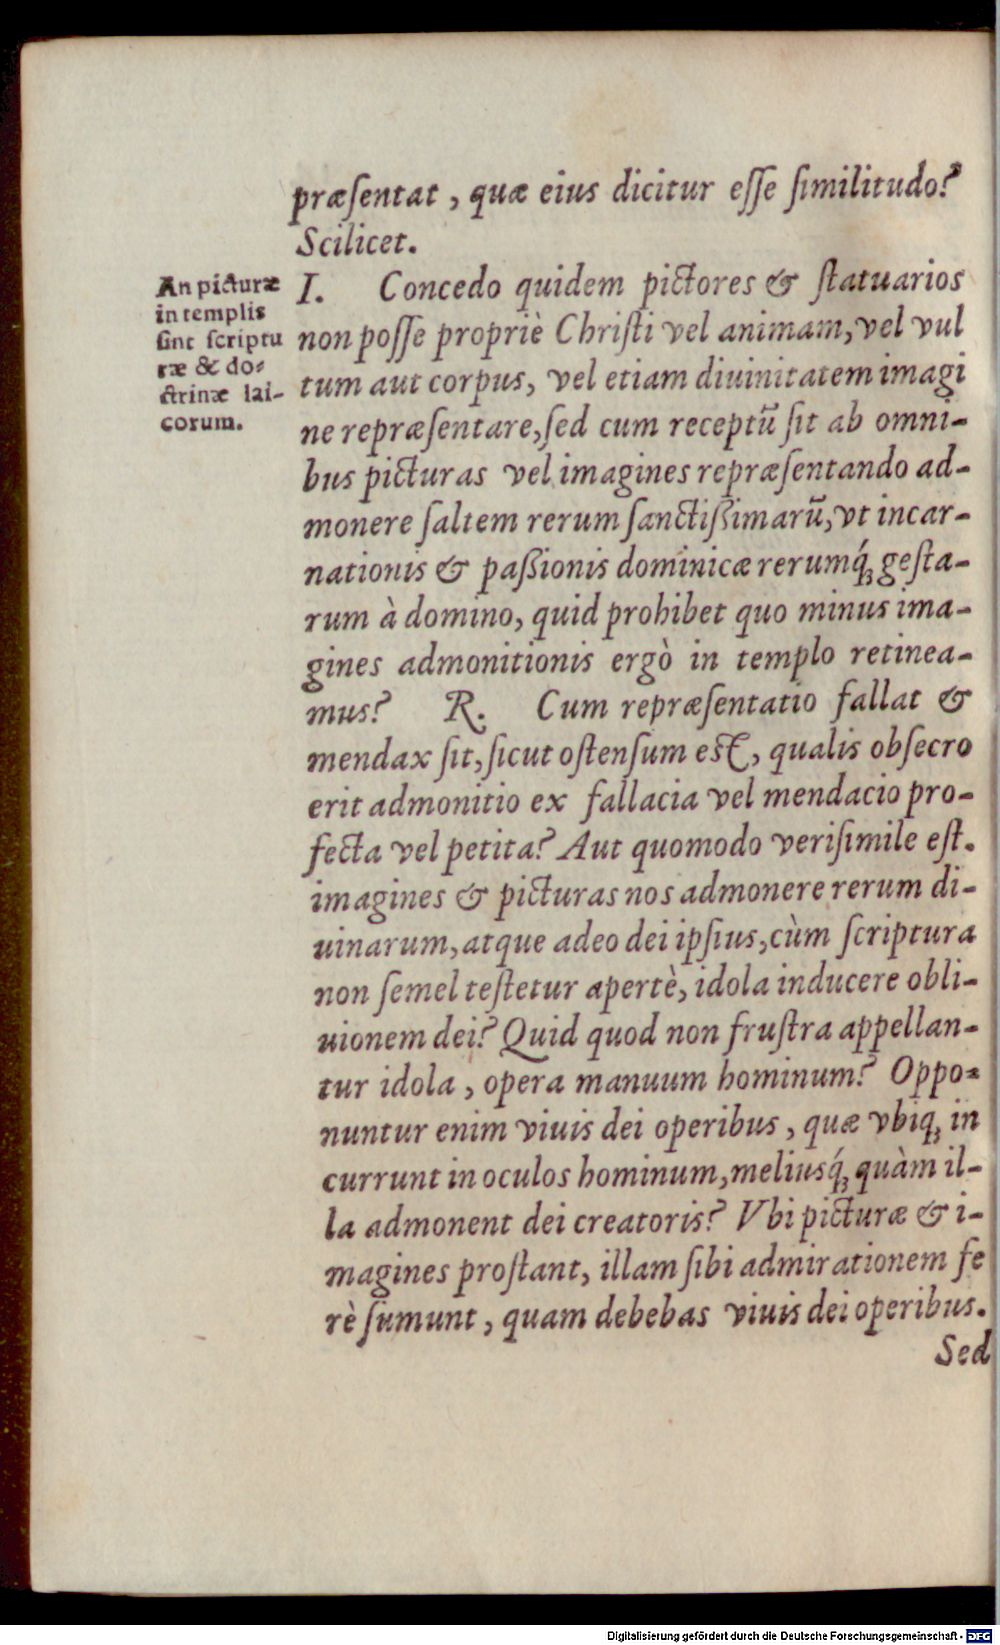 præſentat, quæ eius dicitur eſſe ſimilitudo?
Scilicet.
An picturæ
in templis
ſint ſcriptu
ræ & do-
ctrinæ lai-
corum.
I. Concedo quidem pictores & ſtatuarios
non poſſe propriè Chriſti vel animam, vel vul
tum aut corpus, vel etiam diuinitatem imagi
ne repræſentare, ſed cum receptū ſit ab omni-
bus picturas vel imagines repræſentando ad-
monere ſaltem rerum ſanctißimarū, vt incar-
nationis & paßionis dominicæ rerumq́; geſta-
rum à domino, quid prohibet quo minus ima-
gines admonitionis ergò in templo retinea-
mus? R. Cum repræſentatio fallat &
mendax ſit, ſicut oſtenſum eſt, qualis obſecro
erit admonitio ex fallacia vel mendacio pro-
fecta vel petita? Aut quomodo veriſimile eſt.
imagines & picturas nos admonere rerum di-
uinarum, atque adeo dei ipſius, cùm ſcriptura
non ſemel teſtetur apertè, idola inducere obli-
uionem dei? Quid quod non fruſtra appellan-
tur idola, opera manuum hominum? Oppo-
nuntur enim viuis dei operibus, quæ vbiq; in
currunt in oculos hominum, meliusq́; quàm il-
la admonent dei creatoris? Vbi picturæ & i-
magines proſtant, illam ſibi admirationem fe
rè ſumunt, quam debebas viuis dei operibus.
Sed
Digitalisierung gefördert durch die Deutsche Forschungsgemeinschaft - DFG